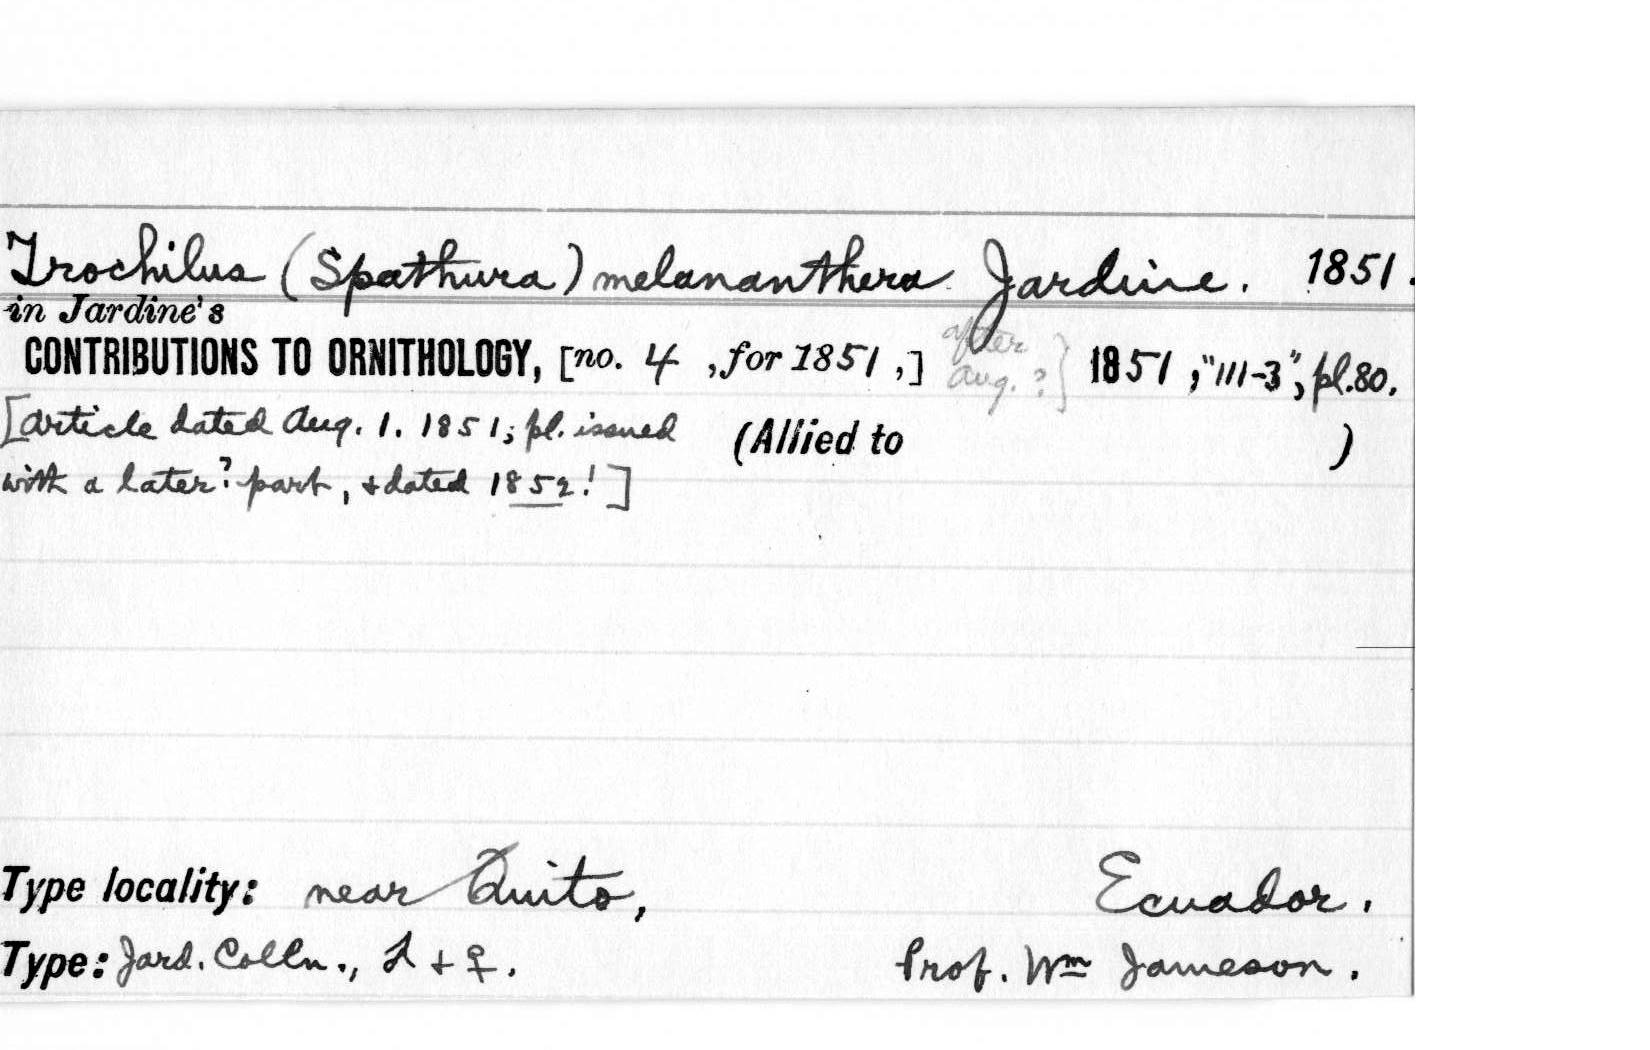 Trochilus (Spathura) melananthera Jardine. 1851.
in Jardine's
CONTRIBUTIONS TO ORNITHOLOGY, [no. 4 , for 1851 ,] after Aug. ? } 1851 , "111-3", pl. 80.
[Article dated Aug. 1. 1851; pl. issued (Allied to )
with a later? part, + dated 1852! ]
Type locality: near Quito, Ecuador.
Type: Jard. Colln., ♂ + ♀. Prof. Wm Jameson.